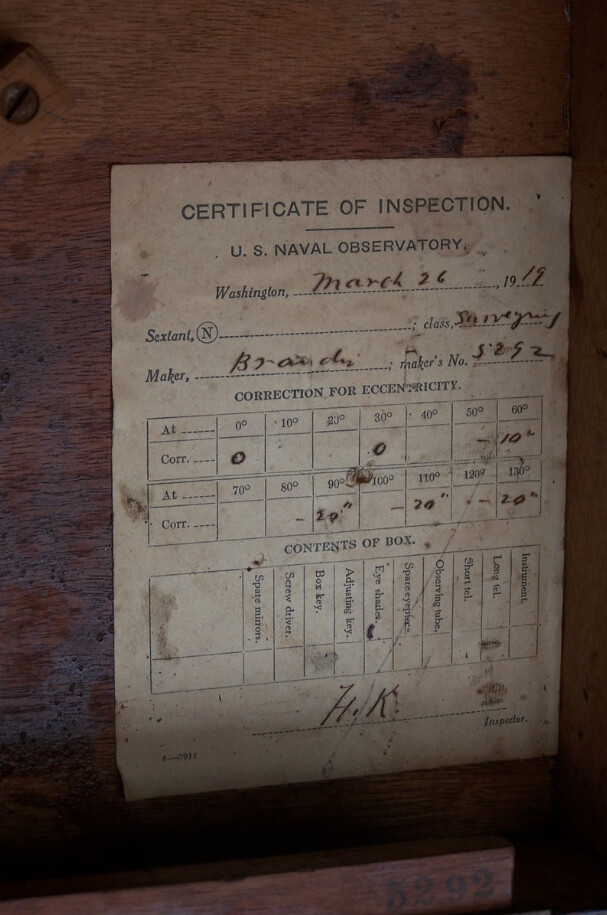 CERTIFICATE OF INSPECTION.
U. S. NAVAL OBSERVATORY,
Washington, March 26, 1919
Sextant, N; class, Surveying
Maker, Brandis; maker's No. 5292
CORRECTION FOR ECCENTRICITY.
At 0° 10° 20° 30° 40° 50° 60°
Corr. 0 0 - 10"
At 70° 80° 90° 100° 110° 120° 130°
Corr. - 20" - 20" - 20"
CONTENTS OF BOX.
Spare mirrors.
Screw driver.
Box key.
Adjusting key.
Eye shades.
Spare eyepiece.
Observing tube.
Short tel.
Long tel.
Instrument.
H. K.
Inspector.
5292